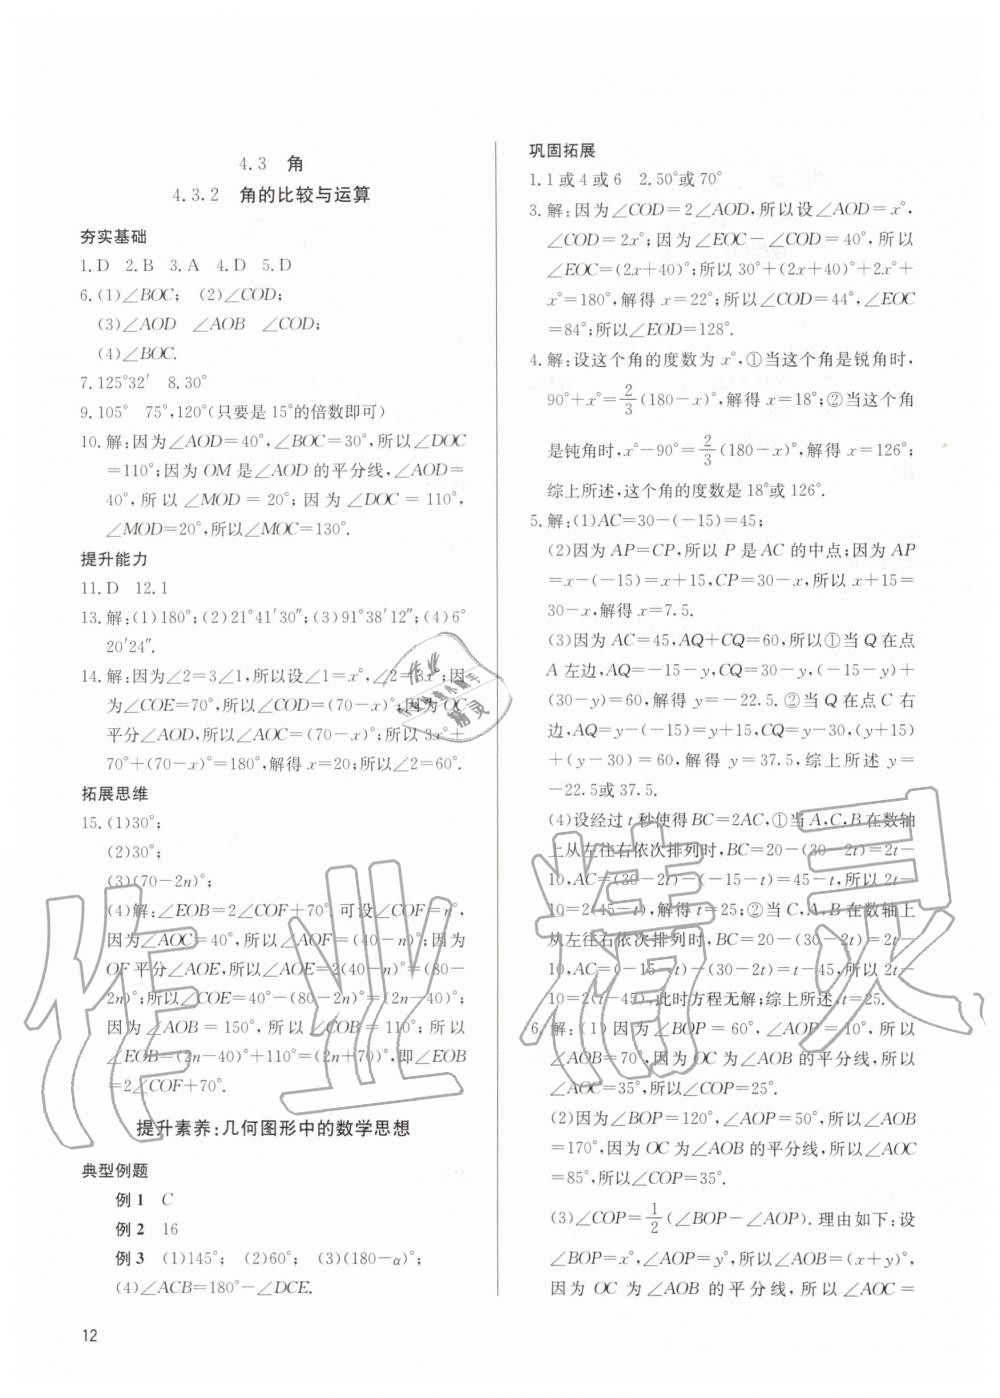 4.3 角
4.3.2 角的比较与运算
夯实基础
1.D 2.B 3.A 4.D 5.D
6.(1)∠BOC; (2)∠COD;
(3)∠AOD ∠AOB ∠COD;
(4)∠BOC.
7.125°32′ 8.30°
9.105° 75°,120°(只要是15°的倍数即可)
10.解:因为∠AOD=40°,∠BOC=30°,所以∠DOC
=110°;因为OM是∠AOD的平分线,∠AOD=
40°,所以∠MOD=20°;因为∠DOC=110°,
∠MOD=20°,所以∠MOC=130°.
提升能力
11.D 12.1
13.解:(1)180°;(2)21°41′30″;(3)91°38′12″;(4)6°
20′24″.
14.解:因为∠2=3∠1,所以设∠1=x°,∠2=3x°;因
为∠COE=70°,所以∠COD=(70-x)°;因为OC
平分∠AOD,所以∠AOC=(70-x)°;所以3x°+
70°+(70-x)°=180°,解得x=20;所以∠2=60°.
拓展思维
15.(1)30°;
(2)30°;
(3)(70-2n)°;
(4)解:∠EOB=2∠COF+70°.可设∠COF=n°,
因为∠AOC=40°,所以∠AOF=(40-n)°;因为
OF平分∠AOE,所以∠AOE=2(40-n)°=(80-
2n)°;所以∠COE=40°-(80-2n)°=(2n-40)°;
因为∠AOB=150°,所以∠COB=110°;所以
∠EOB=(2n-40)°+110°=(2n+70)°,即∠EOB
=2∠COF+70°.
提升素养:几何图形中的数学思想
典型例题
例1 C
例2 16
例3 (1)145°; (2)60°; (3)(180-α)°;
(4)∠ACB=180°-∠DCE.
12
巩固拓展
1.1或4或6 2.50°或70°
3.解:因为∠COD=2∠AOD,所以设∠AOD=x°,
∠COD=2x°;因为∠EOC-∠COD=40°,所以
∠EOC=(2x+40)°;所以30°+(2x+40)°+2x°+
x°=180°,解得x=22°;所以∠COD=44°,∠EOC
=84°;所以∠EOD=128°.
4.解:设这个角的度数为x°,①当这个角是锐角时,
90°+x°=2/3(180-x)°,解得x=18°;②当这个角
是钝角时,x°-90°=2/3(180-x)°,解得x=126°;
综上所述,这个角的度数是18°或126°.
5.解:(1)AC=30-(-15)=45;
(2)因为AP=CP,所以P是AC的中点;因为AP
=x-(-15)=x+15,CP=30-x,所以x+15=
30-x,解得x=7.5.
(3)因为AC=45,AQ+CQ=60,所以①当Q在点
A左边,AQ=-15-y,CQ=30-y,(-15-y)+
(30-y)=60,解得y=-22.5.②当Q在点C右
边,AQ=y-(-15)=y+15,CQ=y-30,(y+15)
+(y-30)=60,解得y=37.5,综上所述,y=
-22.5或37.5.
(4)设经过t秒使得BC=2AC,①当A,C,B在数轴
上从左往右依次排列时,BC=20-(30-2t)=2t-
10,AC=(30-2t)-(-15-t)=45-t,所以2t-
10=2(45-t),解得t=25;②当C,A,B在数轴上
从左往右依次排列时,BC=20-(30-2t)=2t-
10,AC=(-15-t)-(30-2t)=t-45,所以2t-
10=2(t-45),此时方程无解;综上所述,t=25.
6.解:(1)因为∠BOP=60°,∠AOP=10°,所以
∠AOB=70°,因为OC为∠AOB的平分线,所以
∠AOC=35°,所以∠COP=25°.
(2)因为∠BOP=120°,∠AOP=50°,所以∠AOB
=170°,因为OC为∠AOB的平分线,所以∠AOC
=85°,所以∠COP=35°.
(3)∠COP=1/2(∠BOP-∠AOP).理由如下:设
∠BOP=x°,∠AOP=y°,所以∠AOB=(x+y)°;
因为OC为∠AOB的平分线,所以∠AOC=
作业精灵
作业
精灵